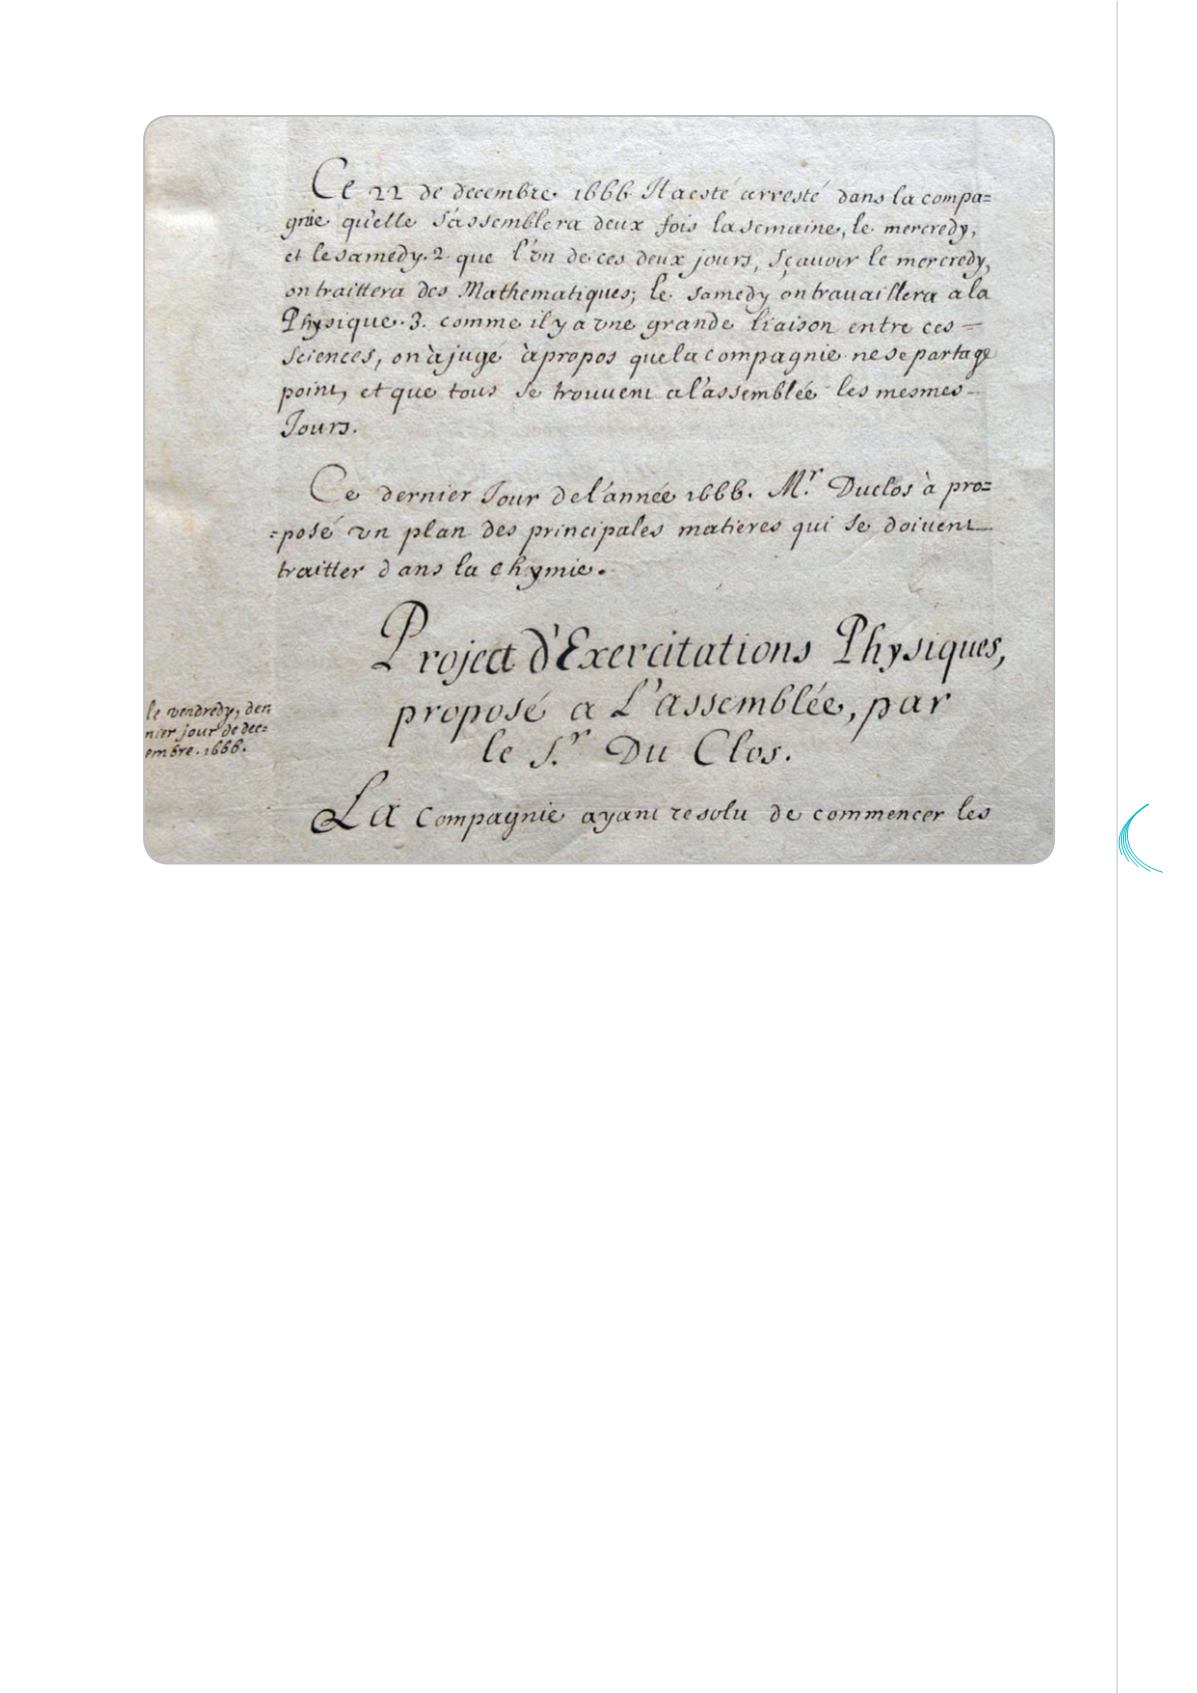 Ce 22 de decembre 1666 Il a esté arresté dans la compa=
gnie qu'elle s'assemblera deux fois la semaine, le mercredy,
et le samedy. 2 que l'vn de ces deux jours, sçauoir le mercredy,
on traittera des Mathematiques; le samedy on trauaillera a la
Physique. 3. comme il y a vne grande liaison entre ces =
sciences, on à jugé à propos que la compagnie ne se partage
point, et que tous se trouuent a l'assemblée les mesmes =
Jours.
Ce dernier Jour de l'année 1666. M.r Duclos à pro=
=posé vn plan des principales matieres qui se doiuent
traitter dans la chymie.
Project d'Exercitations Physiques,
proposé a L'assemblée, par
le S.r Du Clos.
le vendredy, der
nier jour de dec=
embre. 1666.
La Compagnie ayant resolu de commencer les